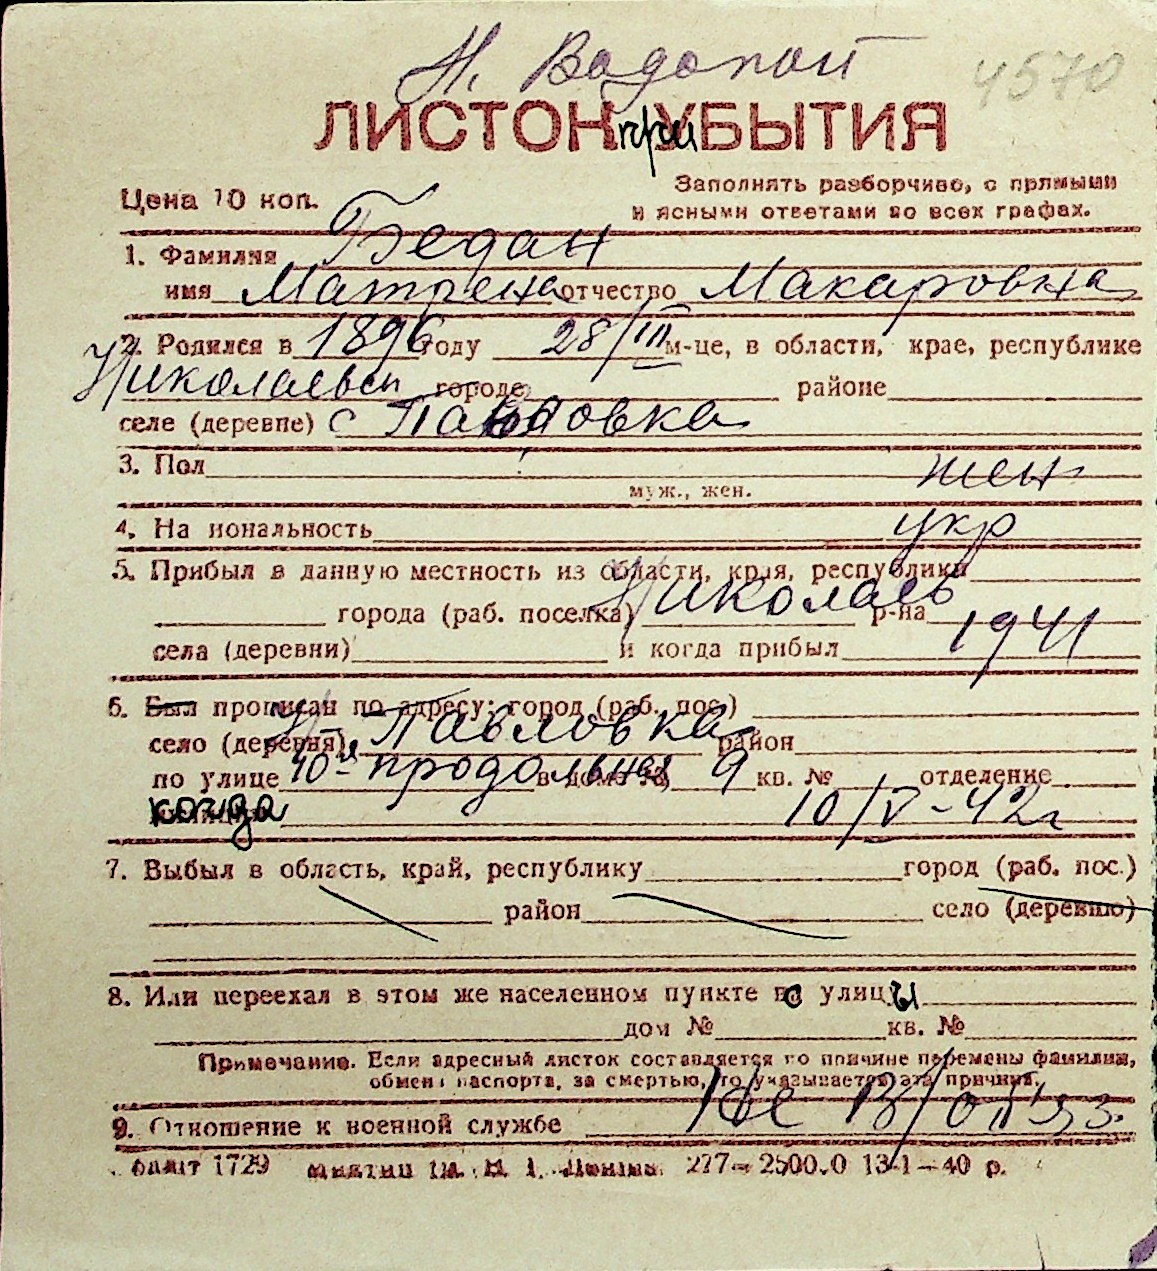 Н. Водопой 4570
ЛИСТОК при УБЫТИЯ
Цена 10 коп.
Заполнять разборчиво, с прямыми
и ясными ответами во всех графах.
1. Фамилия Бедан
имя Матрена отчество Макаровна
2. Родился в 1896 году 28/III м-це, в области, крае, республике
Николаевск городе районе
селе (деревне) с Павловка
3. Пол жен
муж., жен.
4. Национальность укр
5. Прибыл в данную местность из области, края, республики
города (раб. поселка) Николаев р-на
села (деревни) и когда прибыл 1941
6. Был прописан по адресу: город (раб. пос.)
село (деревня) Н. Павловка район
по улице 10-я продольная в доме № 9 кв. № отделение
когда 10/V-42г
7. Выбыл в область, край, республику город (раб. пос.)
район село (деревню)
8. Или переехал в этом же населенном пункте с улицы
дом № кв. №
Примечание. Если адресный листок составляется по причине перемены фамилии,
обмена паспорта, за смертью, то указывается эта причина.
9. Отношение к военной службе Не в/обяз.
1729 227—2500.0 13-1—40 р.